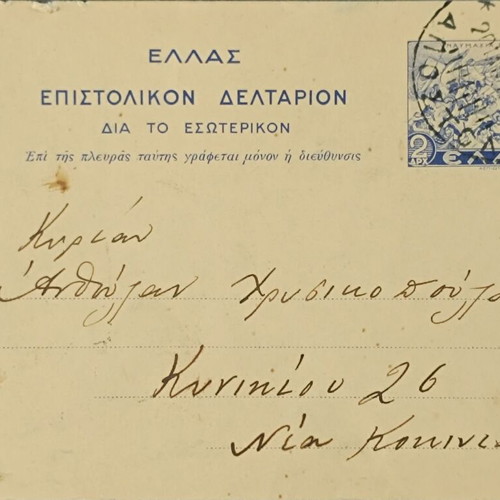 ΕΛΛΑΣ
ΕΠΙΣΤΟΛΙΚΟΝ ΔΕΛΤΑΡΙΟΝ
ΔΙΑ ΤΟ ΕΣΩΤΕΡΙΚΟΝ
Ἐπὶ τῆς πλευρᾶς ταύτης γράφεται μόνον ἡ διεύθυνσις
2
ΔΡ
Κυρίαν
Ἀνθούλαν Χρυσικοπούλο
Κυνικίου 26
Νέα Κοκινι